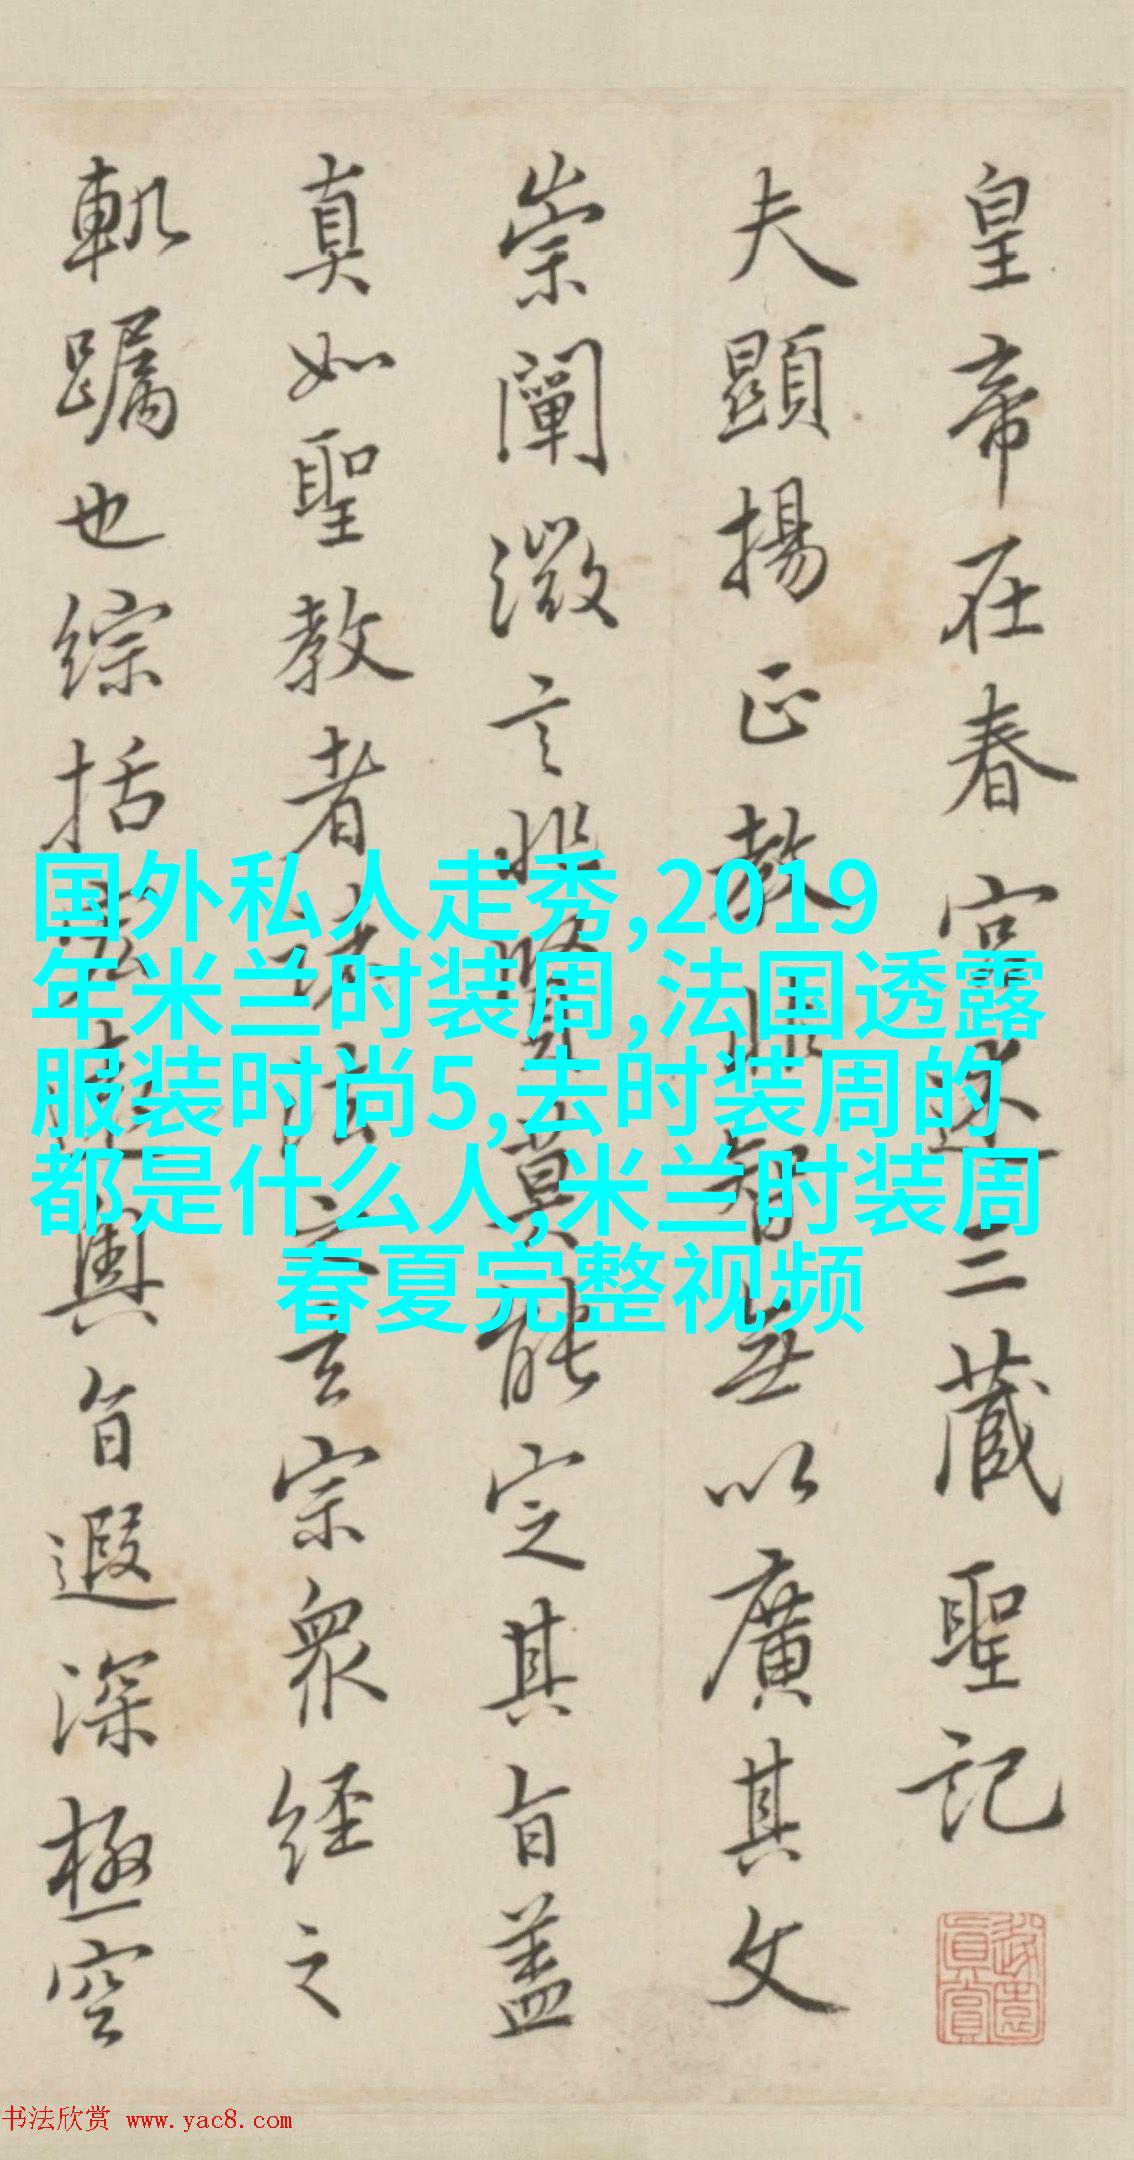 皇帝在春宮述三藏聖記
夫顯揚正教非智無以廣其文
崇闡微言非賢莫能定其旨蓋
真如聖教者諸法之玄宗眾經之
軌躅也綜括宏遠奧旨遐深極空
国外私人走秀,2019
年米兰时装周,法国透露
服装时尚5,去时装周的
都是什么人,米兰时装周
春夏完整视频
书法欣赏 www.yac8.com